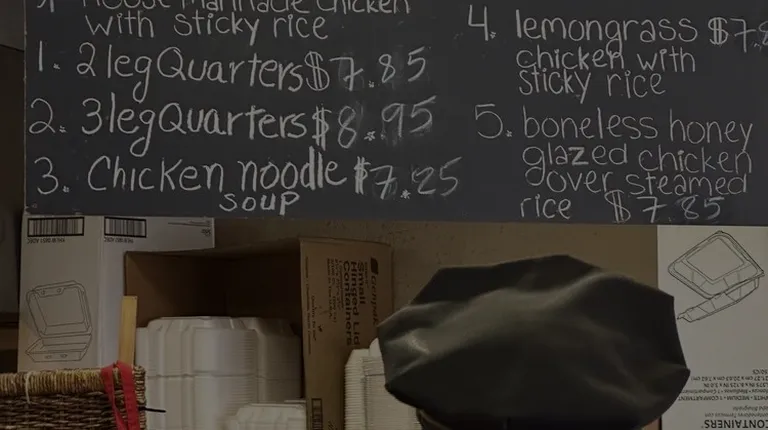 with sticky rice
1. 2 leg Quarters $7.85
2. 3 leg Quarters $8.95
3. Chicken noodle $7.25
soup
4. lemongrass $7.8
chicken with
sticky rice
5. boneless honey
glazed chicken
over steamed
rice $7.85
Small
Hinged Lid
Containers
CONTAINERS